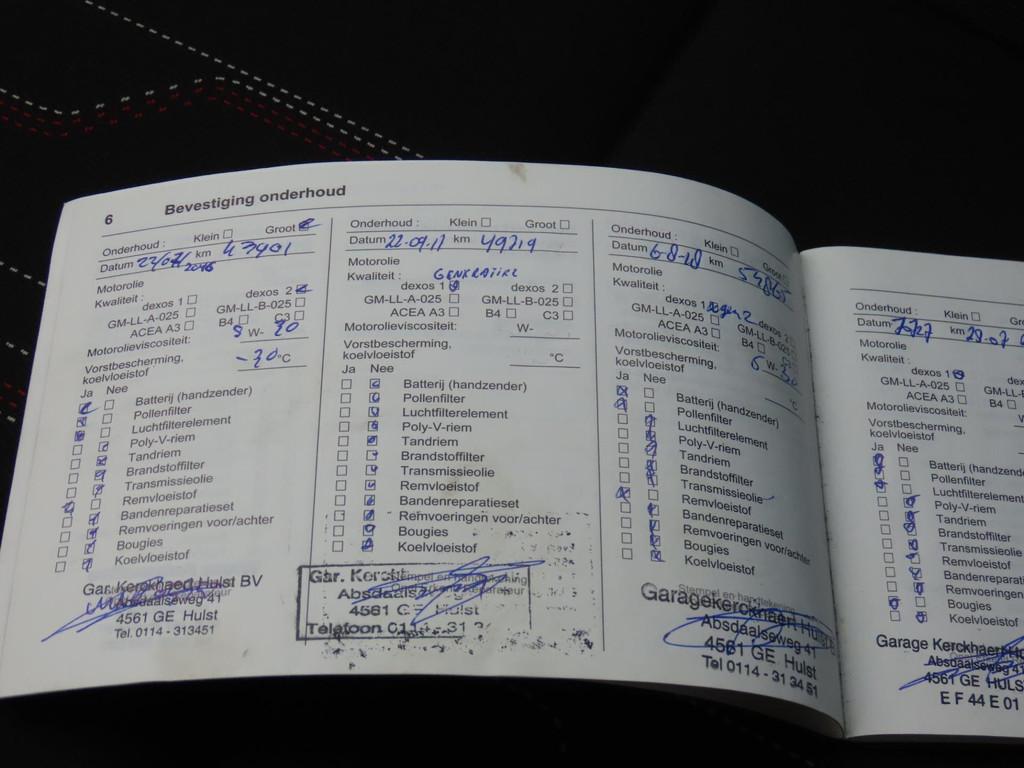 6 Bevestiging onderhoud
Onderhoud : Klein Groot
Datum 23/07/2016 km 43901
Motorolie
Kwaliteit : dexos 1 dexos 2
GM-LL-A-025 GM-LL-B-025
ACEA A3 B4 C3
Motorolieviscositeit: 5 W- 30
Vorstbescherming,
koelvloeistof -30 °C
Ja Nee
Batterij (handzender)
Pollenfilter
Luchtfilterelement
Poly-V-riem
Tandriem
Brandstoffilter
Transmissieolie
Remvloeistof
Bandenreparatieset
Remvoeringen voor/achter
Bougies
Koelvloeistof
Gar. Kerckhaert Hulst BV
Absdaalseweg 41
4561 GE Hulst
Tel. 0114 - 313451
Onderhoud : Klein Groot
Datum 22-09-17 km 49719
Motorolie
Kwaliteit :
dexos 1 dexos 2
GM-LL-A-025 GM-LL-B-025
ACEA A3 B4 C3
Motorolieviscositeit: W-
Vorstbescherming,
koelvloeistof °C
Ja Nee
Batterij (handzender)
Pollenfilter
Luchtfilterelement
Poly-V-riem
Tandriem
Brandstoffilter
Transmissieolie
Remvloeistof
Bandenreparatieset
Remvoeringen voor/achter
Bougies
Koelvloeistof
Stempel en handtekening
Gar.
4561 GE Hulst
Telefoon 0114 - 31
Onderhoud : Klein Groot
Datum 6-8-18 km 54865
Motorolie
Kwaliteit :
dexos 1 dexos 2
GM-LL-A-025 GM-LL-B-025
ACEA A3 B4 C3
Motorolieviscositeit: 5 W- 30
Vorstbescherming,
koelvloeistof °C
Ja Nee
Batterij (handzender)
Pollenfilter
Luchtfilterelement
Poly-V-riem
Tandriem
Brandstoffilter
Transmissieolie
Remvloeistof
Bandenreparatieset
Remvoeringen voor/achter
Bougies
Koelvloeistof
Stempel en handtekening
Garage Kerckhaert
Absdaalseweg 41
4561 GE Hulst
Tel 0114 - 31 34 51
Onderhoud : Klein
Datum km
Motorolie
Kwaliteit :
dexos 1
GM-LL-A-025
ACEA A3 B4
Motorolieviscositeit:
Vorstbescherming,
koelvloeistof
Ja Nee
Batterij
Pollenfilter
Luchtfilterelement
Poly-V-riem
Tandriem
Brandstoffilter
Transmissieolie
Remvloeistof
Remvoeringen
Bougies
Koelvloeistof
Garage Kerckhaert
Absdaalseweg 41
4561 GE HULST
E F 44 E 01